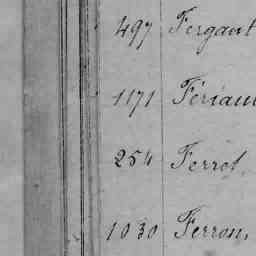 497 Fergant
1171 Fériau
254 Ferrot,
1030 Ferron,